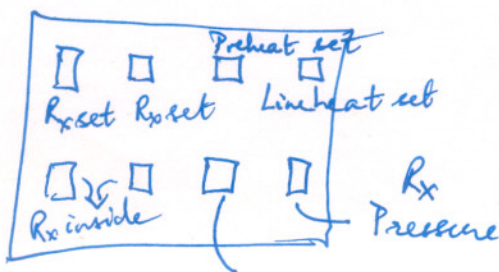 Preheat set
Rx set Rx set Lineheat set
Rx inside
Rx
Pressure